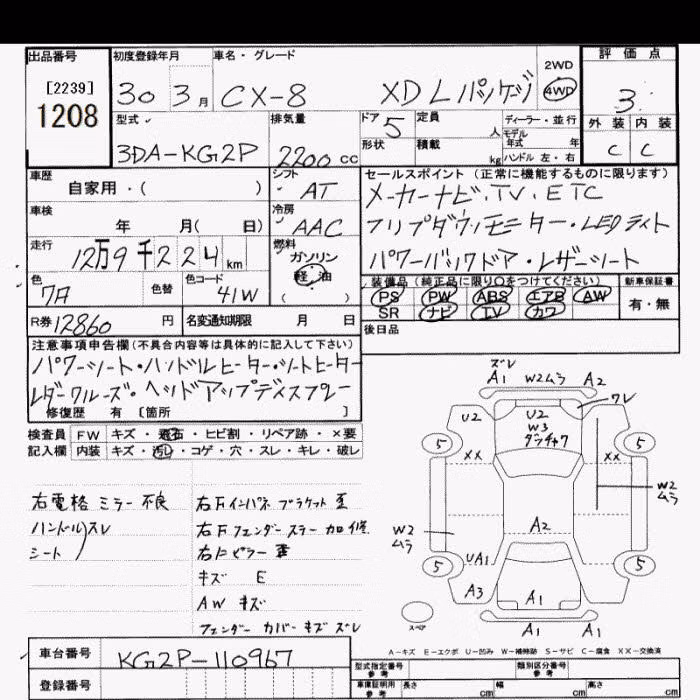 出品番号
[2239]
1208
初度登録年月
30 3月
車名・グレード
CX-8 XD Lパッケージ
2WD
4WD
評価点
3
外装 内装
C C
型式
3DA-KG2P
排気量
2200cc
ドア
5
形状
定員
人
積載
kg
ディーラー・並行
モデル
年式 年
ハンドル 左・右
車歴
自家用・( )
シフト
AT
車検
年 月( 日)
冷房
AAC
走行
12万9千224km
燃料
ガソリン
軽・油
( )
色
7A
色替
色コード
41W
R券 12860円
名変通知期限 月 日
セールスポイント (正常に機能するものに限ります)
メーカーナビ・TV・ETC
フリップダウンモニター・LEDライト
パワーバックドア・レザーシート
装備品(純正品に限り○をつけてください)
PS PW ABS エアB AW
SR ナビ TV カワ
新車保証書
有・無
後日品
注意事項申告欄(不具合内容等は具体的に記入して下さい)
パワーシート・ハンドルヒーター・シートヒーター
レダークルーズ・ヘッドアップディスプレー
修復歴 有 [箇所 ]
検査員 FW キズ・飛石・ヒビ割・リペア跡・×要
記入欄 内装 キズ・汚れ・コゲ・穴・スレ・キレ・破レ
右電格ミラー不良
ハンドルスレ
シート
右Fインパネブラケット歪
右Fフェンダーステー加修
右Cピラー
キズ E
AW キズ
フェンダーカバーキズズレ
ズレ
A1 W2ムラ A2
ワレ
U2
U2
W3
ダッチャク
5
5
XX
XX
W2
ムラ
W2
ムラ
A2
UA1
5
5
A3
A1
A1 A1
スペア
A-キズ E-エクボ U-凹み W-補修跡 S-サビ C-腐食 XX-交換済
車台番号
KG2P-110967
登録番号
型式指定番号
参考
類別区分番号
参考
車庫証明用
参考
長さ cm
幅 cm
高さ cm